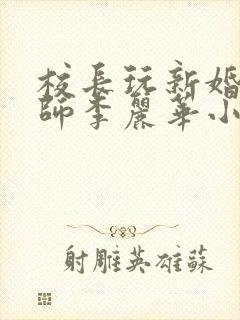 校長玩新婚
師李麗華小
射雕英雄蘇